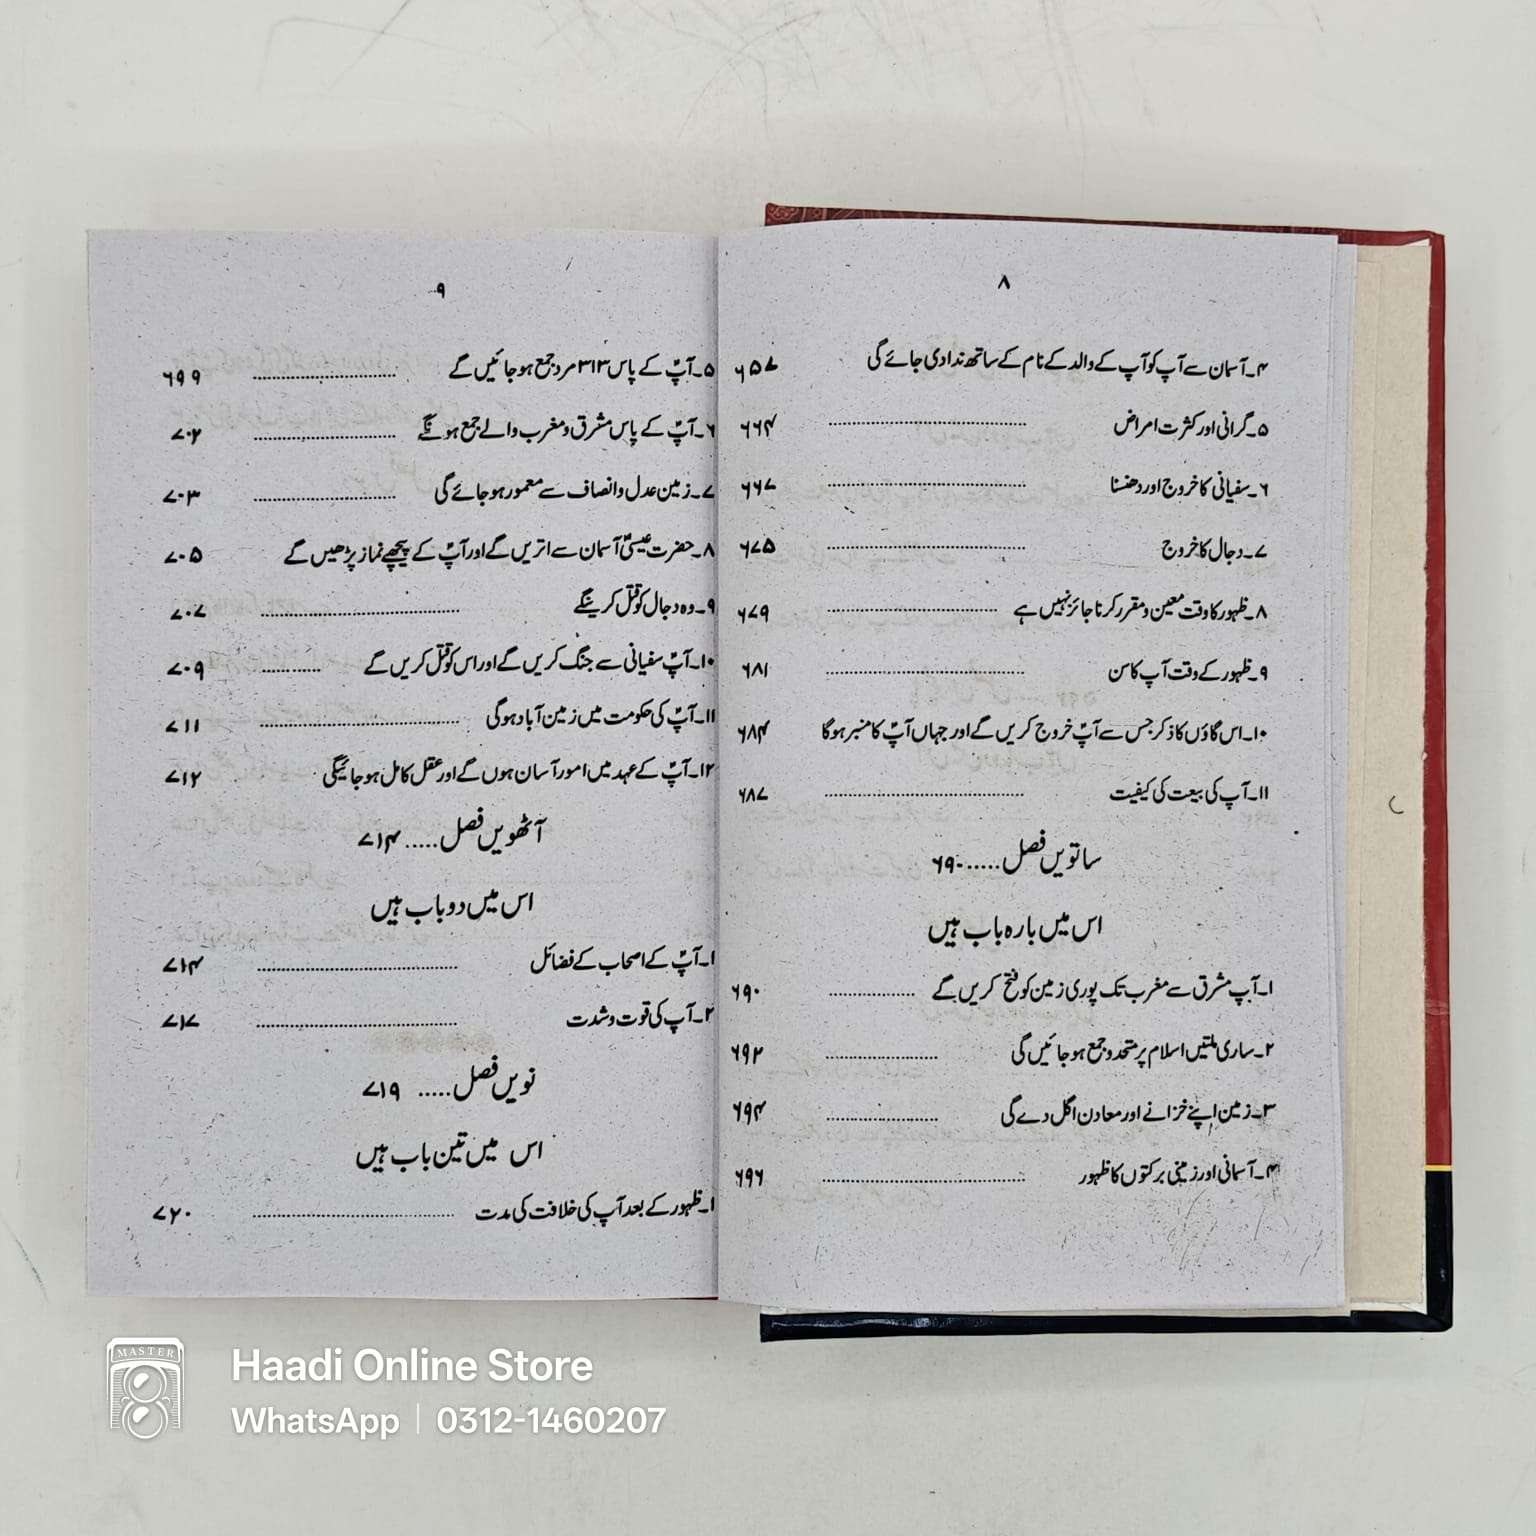 ۸
۴۔آسمان سے آپ کو آپ کے والد کے نام کے ساتھ ندا دی جائے گی ۶۵۷
۵۔گرانی اور کثرت امراض ........ ۶۶۴
۶۔سفیانی کا خروج اور دھنسنا ........ ۶۶۷
۷۔دجال کا خروج ........ ۶۷۵
۸۔ظہور کا وقت معین و مقرر کرنا جائز نہیں ہے ........ ۶۷۹
۹۔ظہور کے وقت آپ کا سن ........ ۶۸۱
۱۰۔اس گاؤں کا ذکر جس سے آپؑ خروج کریں گے اور جہاں آپؑ کا منبر ہوگا ۶۸۴
۱۱۔آپ کی بیعت کی کیفیت ........ ۶۸۷
ساتویں فصل.....۶۹۰
اس میں بارہ باب ہیں
۱۔آپ مشرق سے مغرب تک پوری زمین کو فتح کریں گے ........ ۶۹۰
۲۔ساری ملتیں اسلام پر متحد و جمع ہو جائیں گی ........ ۶۹۲
۳۔زمین اپنے خزانے اور معادن اگل دے گی ........ ۶۹۴
۴۔آسمانی اور زمینی برکتوں کا ظہور ........ ۶۹۶
۹
۵۔آپؑ کے پاس ۳۱۳ مرد جمع ہو جائیں گے ........ ۶۹۹
۶۔آپؑ کے پاس مشرق و مغرب والے جمع ہونگے ........ ۷۰۲
۷۔زمین عدل و انصاف سے معمور ہو جائے گی ........ ۷۰۳
۸۔حضرت عیسیٰؑ آسمان سے اتریں گے اور آپؑ کے پیچھے نماز پڑھیں گے ۷۰۵
۹۔وہ دجال کو قتل کرینگے ........ ۷۰۷
۱۰۔آپؑ سفیانی سے جنگ کریں گے اور اس کو قتل کریں گے ........ ۷۰۹
۱۱۔آپؑ کی حکومت میں زمین آباد ہوگی ........ ۷۱۱
۱۲۔آپؑ کے عہد میں امور آسان ہوں گے اور عقل کامل ہو جائیگی ۷۱۲
آٹھویں فصل.....۷۱۴
اس میں دو باب ہیں
۱۔آپؑ کے اصحاب کے فضائل ........ ۷۱۴
۲۔آپ کی قوت و شدت ........ ۷۱۷
نویں فصل..... ۷۱۹
اس میں تین باب ہیں
۱۔ظہور کے بعد آپ کی خلافت کی مدت ........ ۷۲۰
MASTER
Haadi Online Store
WhatsApp | 0312-1460207